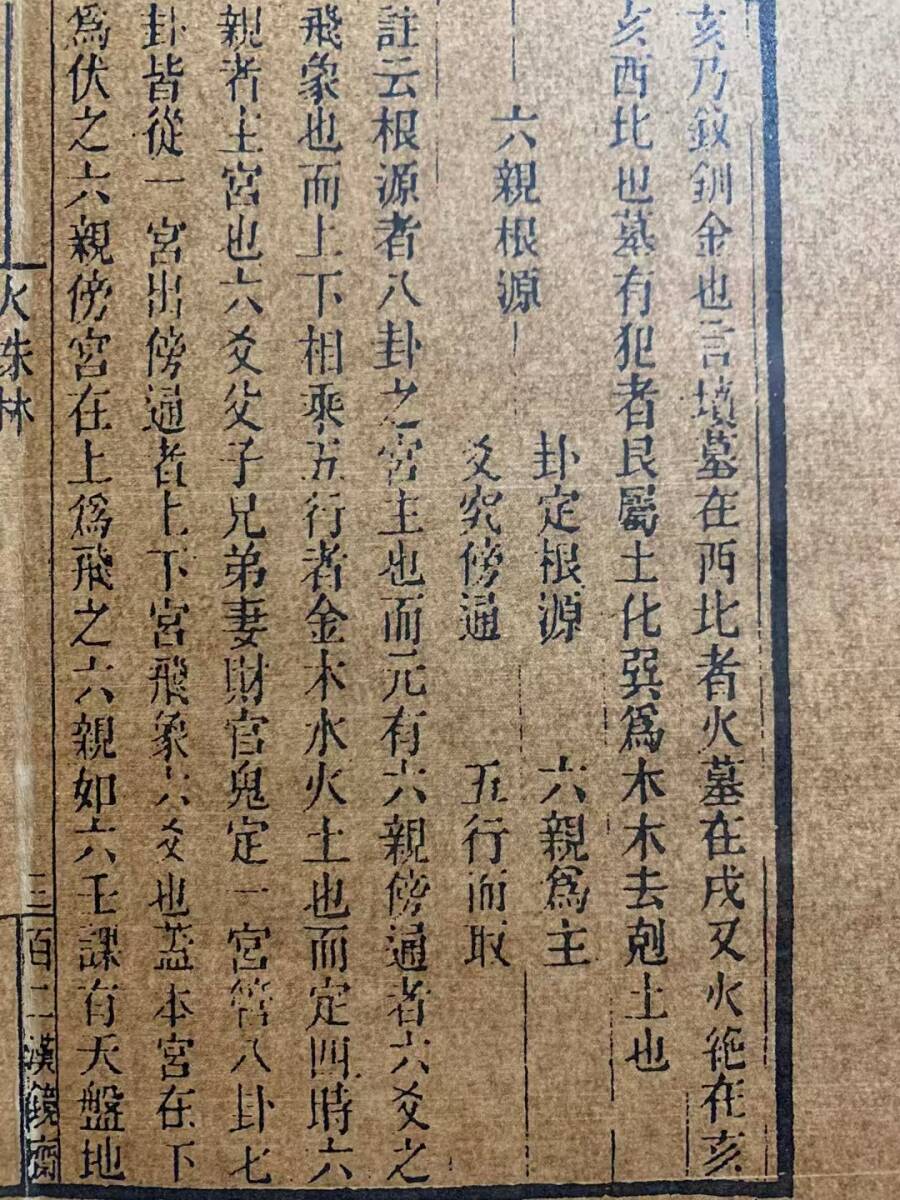 亥乃釵釧金也言墳墓在西北者火墓在戌又火絶在亥
亥西北也墓有犯者艮屬土化巽爲木木去剋土也
六親根源
卦定根源
六親爲主
爻究傍通
五行而取
註云根源者八卦之宮主也而元有六親傍通者六爻之
飛象也而上下相乘五行者金木水火土也而定四時六
親者主宮也六爻父子兄弟妻財官鬼定一宮管八卦七
卦皆從一宮出傍通者上下宮飛象六爻也蓋本宮在下
爲伏之六親傍宮在上爲飛之六親如六壬課有天盤地
火珠林
三
百二漢鏡齋